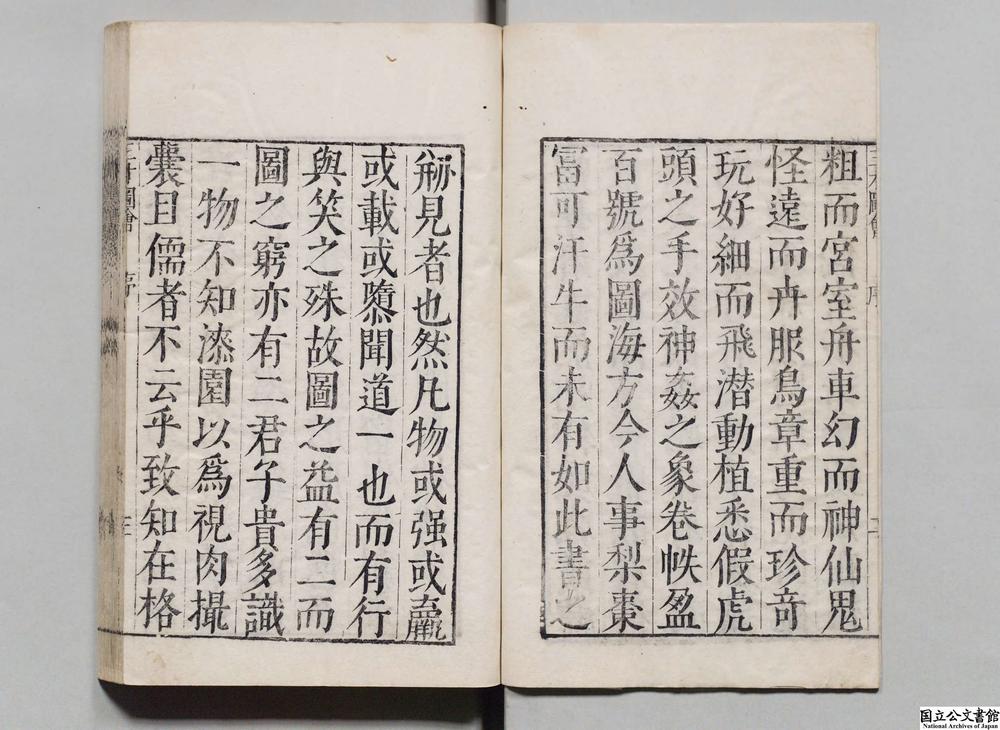 粗而宮室舟車幻而神仙鬼
怪遠而卉服鳥章重而珍竒
玩好細而飛潜動植悉假虎
頭之手效神姦之象卷帙盈
百號爲圖海方今人事梨棗
富可汗牛而未有如此書之
觧見者也然凡物或强或羸
或載或隳聞道一也而有行
與笑之殊故圖之益有二而
圖之窮亦有二君子貴多識
一物不知漆園以爲視肉撮
囊目儒者不云乎致知在格
三才圖會
序
三
国立公文書館
National Archives of Japan